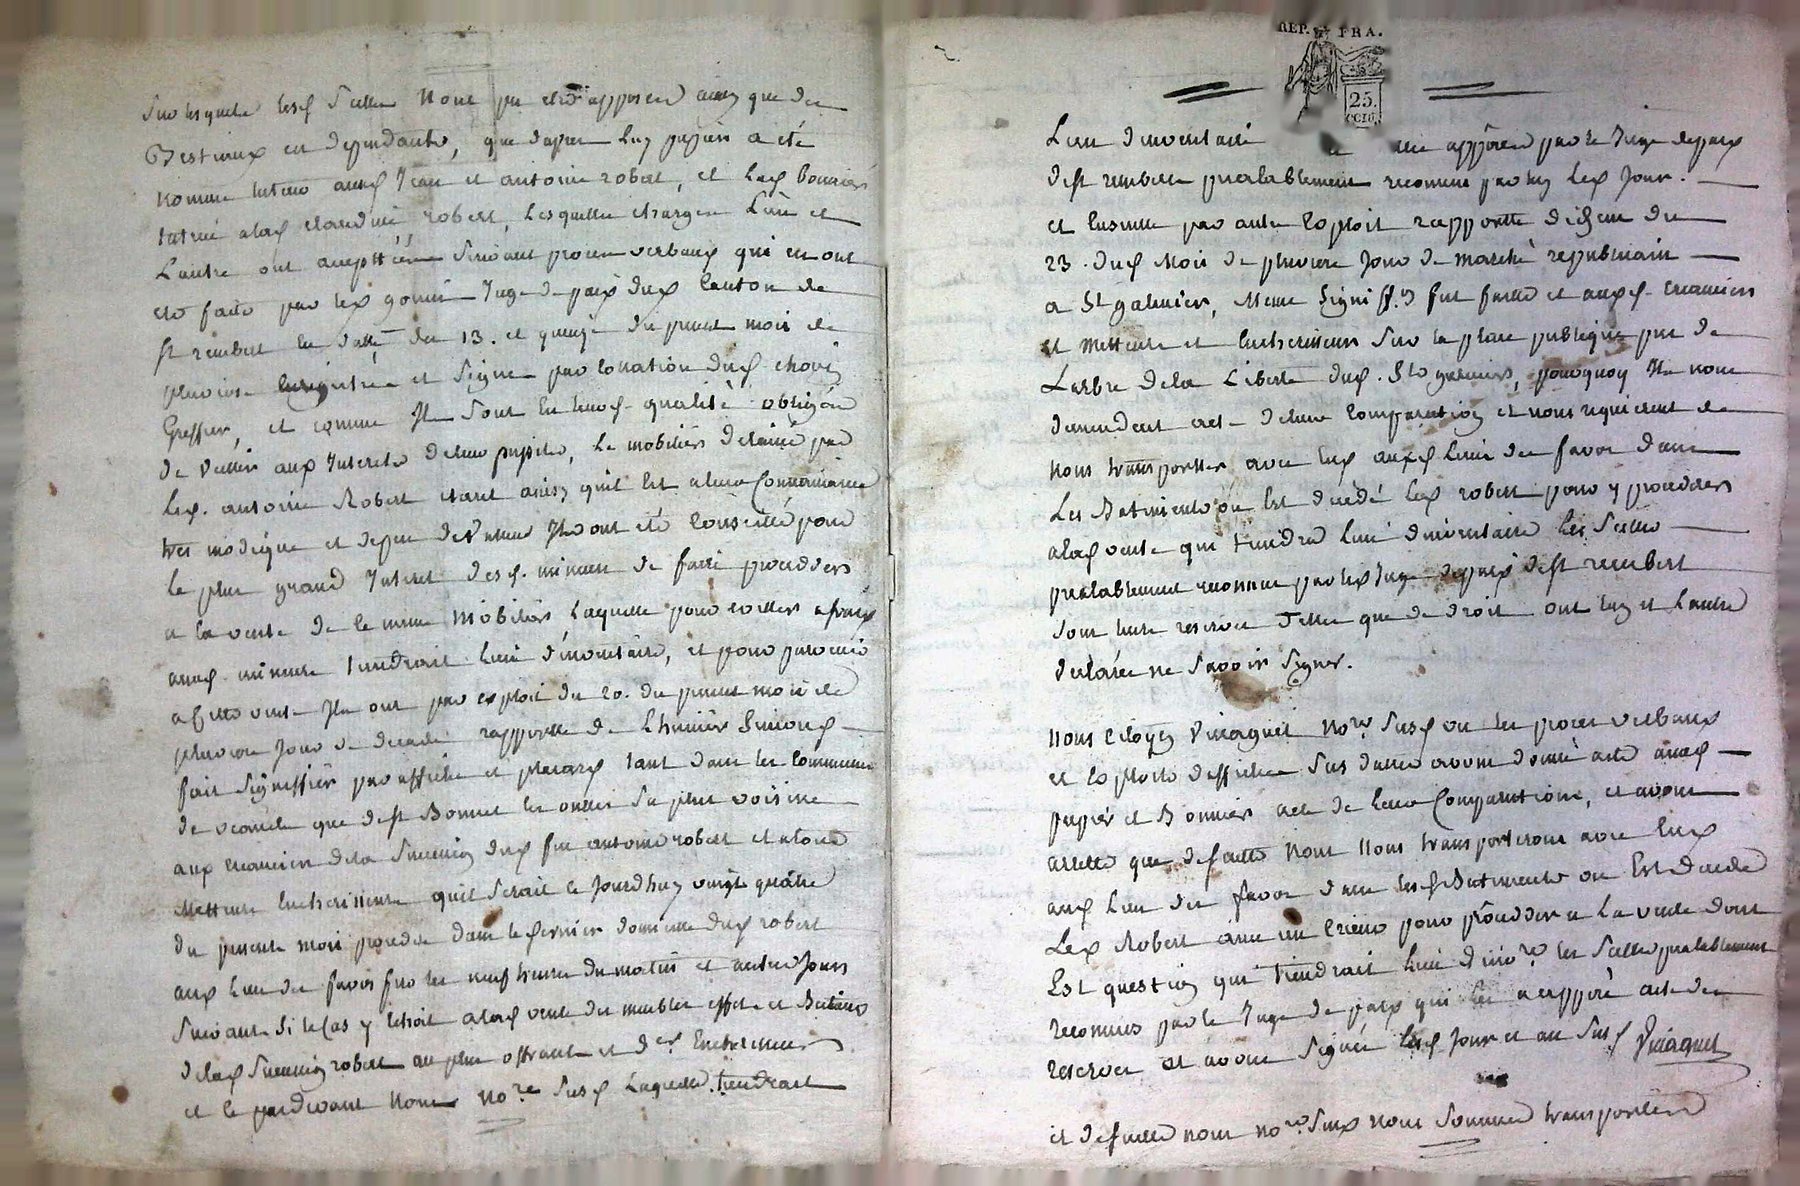 sur lesquels lesd scellés nont pu etre apposés ainsy que des
Bestiaux en dependants, que dapres luy papier a été
nommé tuteur auxd Jean et antoine robert, et lad bonnier
tutrice a lad claudine robert, lesquelles charges l'un et
L'autre ont acceptées suivant proces verbaux qui en ont
eté faits par led Juge de paix dud Canton de
st rembert en datte des 13. et quinze du present mois de
pluviose enregistrés et signés par
Greffier, et comme Ils sont en leursd qualités obligés
de veiller aux Interets de leurs pupilles, le mobilier delaissé par
led. antoine Robert etant ainsy quil est a leur Connoissance
tres modique et de peu de valeur Ils ont été conseillés pour
le plus grand Interet desd. mineurs de faire proceder
a la vente de le meme mobilier laquelle pour eviter a frais
auxd. mineurs tiendrait lieu d'inventaire, et pour parvenir
a cette vente Ils ont par exploit du 20. du present mois de
pluviose Jour de decade rapporté de L'huissier
fait signiffier par affiches et placards tant dans les communes
de veauche que de st Bonnet les oules sa plus voisine
aux creanciers de la succession dud feu antoine robert et a tous
Metteurs encherisseurs quil serait ce Jourdhuy vingt quatre
du present mois procedé dans le dernier domicile dud robert
aux lieu des favos sur les neuf heures du matin et autres Jours
suivants si le Cas y echoit a lad vente des meubles effets et Bestiaux
de lad succession robert au plus offrant et der Encherisseur
et ce pardevant nous nore susd laquelle tiendrait
REP. FRA.
25.
CCIII.
Lieu d'inventaire apposés par le Juge de paix
de st rembert prealablement reconnus par luy led Jour.
et ensuitte par autre Exploit rapporté dicelui du
23. dud mois de pluviose Jour de marché republicain
a St galmier, meme signiff.on fut faitte et auxd. creanciers
et metteurs et encherisseurs sur la place publique pres de
L'arbre de la Liberté dud. St galmier, pourquoy Ils nous
demandent acte de leur Comparution et nous requierent de
nous transporter avec eux auxd lieu des favos dans
Les Batiments où est decedé led robert pour y proceder
a lad vente qui tiendra lieu dinventaire les scellés
prealablement reconnus par led Juge de paix de st rembert
sous leurs reserves telles que de droit ont luy et l'autre
declarés ne savoir signer.
nous Citoyen Viricquel nore susd vu les proces verbaux
et Exploits daffiches sus dattés avons donné acte auxd
papier et Bonnier acte de leur Comparution, et avons
arretté que de suitte nous nous transporterons avec eux
aud lieu des favos dans lesd Batiments ou est decedé
led Robert avec un crieur pour proceder a la vente dont
Est question qui tiendrait lieu d'invre les scellés prealablement
reconnus par le Juge de paix qui les a apposé acte des
reserves et avons signés lesd Jour et an susd
et de suitte nous nore susd nous sommes transportés